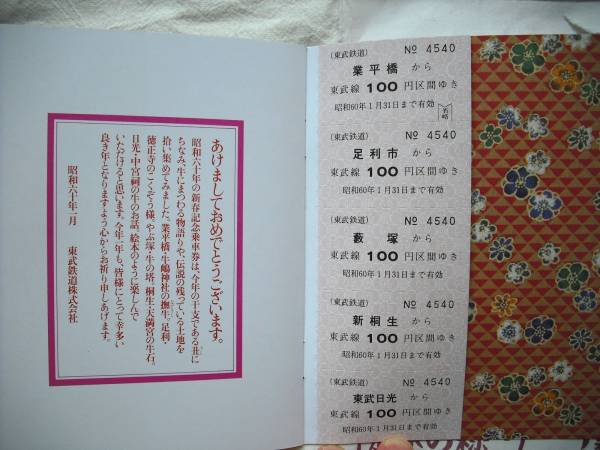 あけましておめでとうございます。
昭和六十年の新春記念乗車券は、今年の干支である「丑」に
ちなみ、牛にまつわる物語りや、伝説の残っている土地を
拾い集めてみました。業平橋・牛嶋神社の撫牛。足利・
徳正寺のこくぞう様。やぶ塚・牛の塔。桐生・天満宮の牛石。
日光・中宮祠の牛のお話。絵本のように楽しんで
いただけると思います。今年一年も、皆様にとって幸多い
良き年となりますよう心からお祈り申しあげます。
昭和六十年一月
東武鉄道株式会社
(東武鉄道) № 4540
業平橋 から
東武線 100 円区間ゆき
昭和60年1月31日まで有効
(東武鉄道) № 4540
足利市 から
東武線 100 円区間ゆき
昭和60年1月31日まで有効
(東武鉄道) № 4540
藪塚 から
東武線 100 円区間ゆき
昭和60年1月31日まで有効
(東武鉄道) № 4540
新桐生 から
東武線 100 円区間ゆき
昭和60年1月31日まで有効
(東武鉄道) № 4540
東武日光 から
東武線 100 円区間ゆき
昭和60年1月31日まで有効